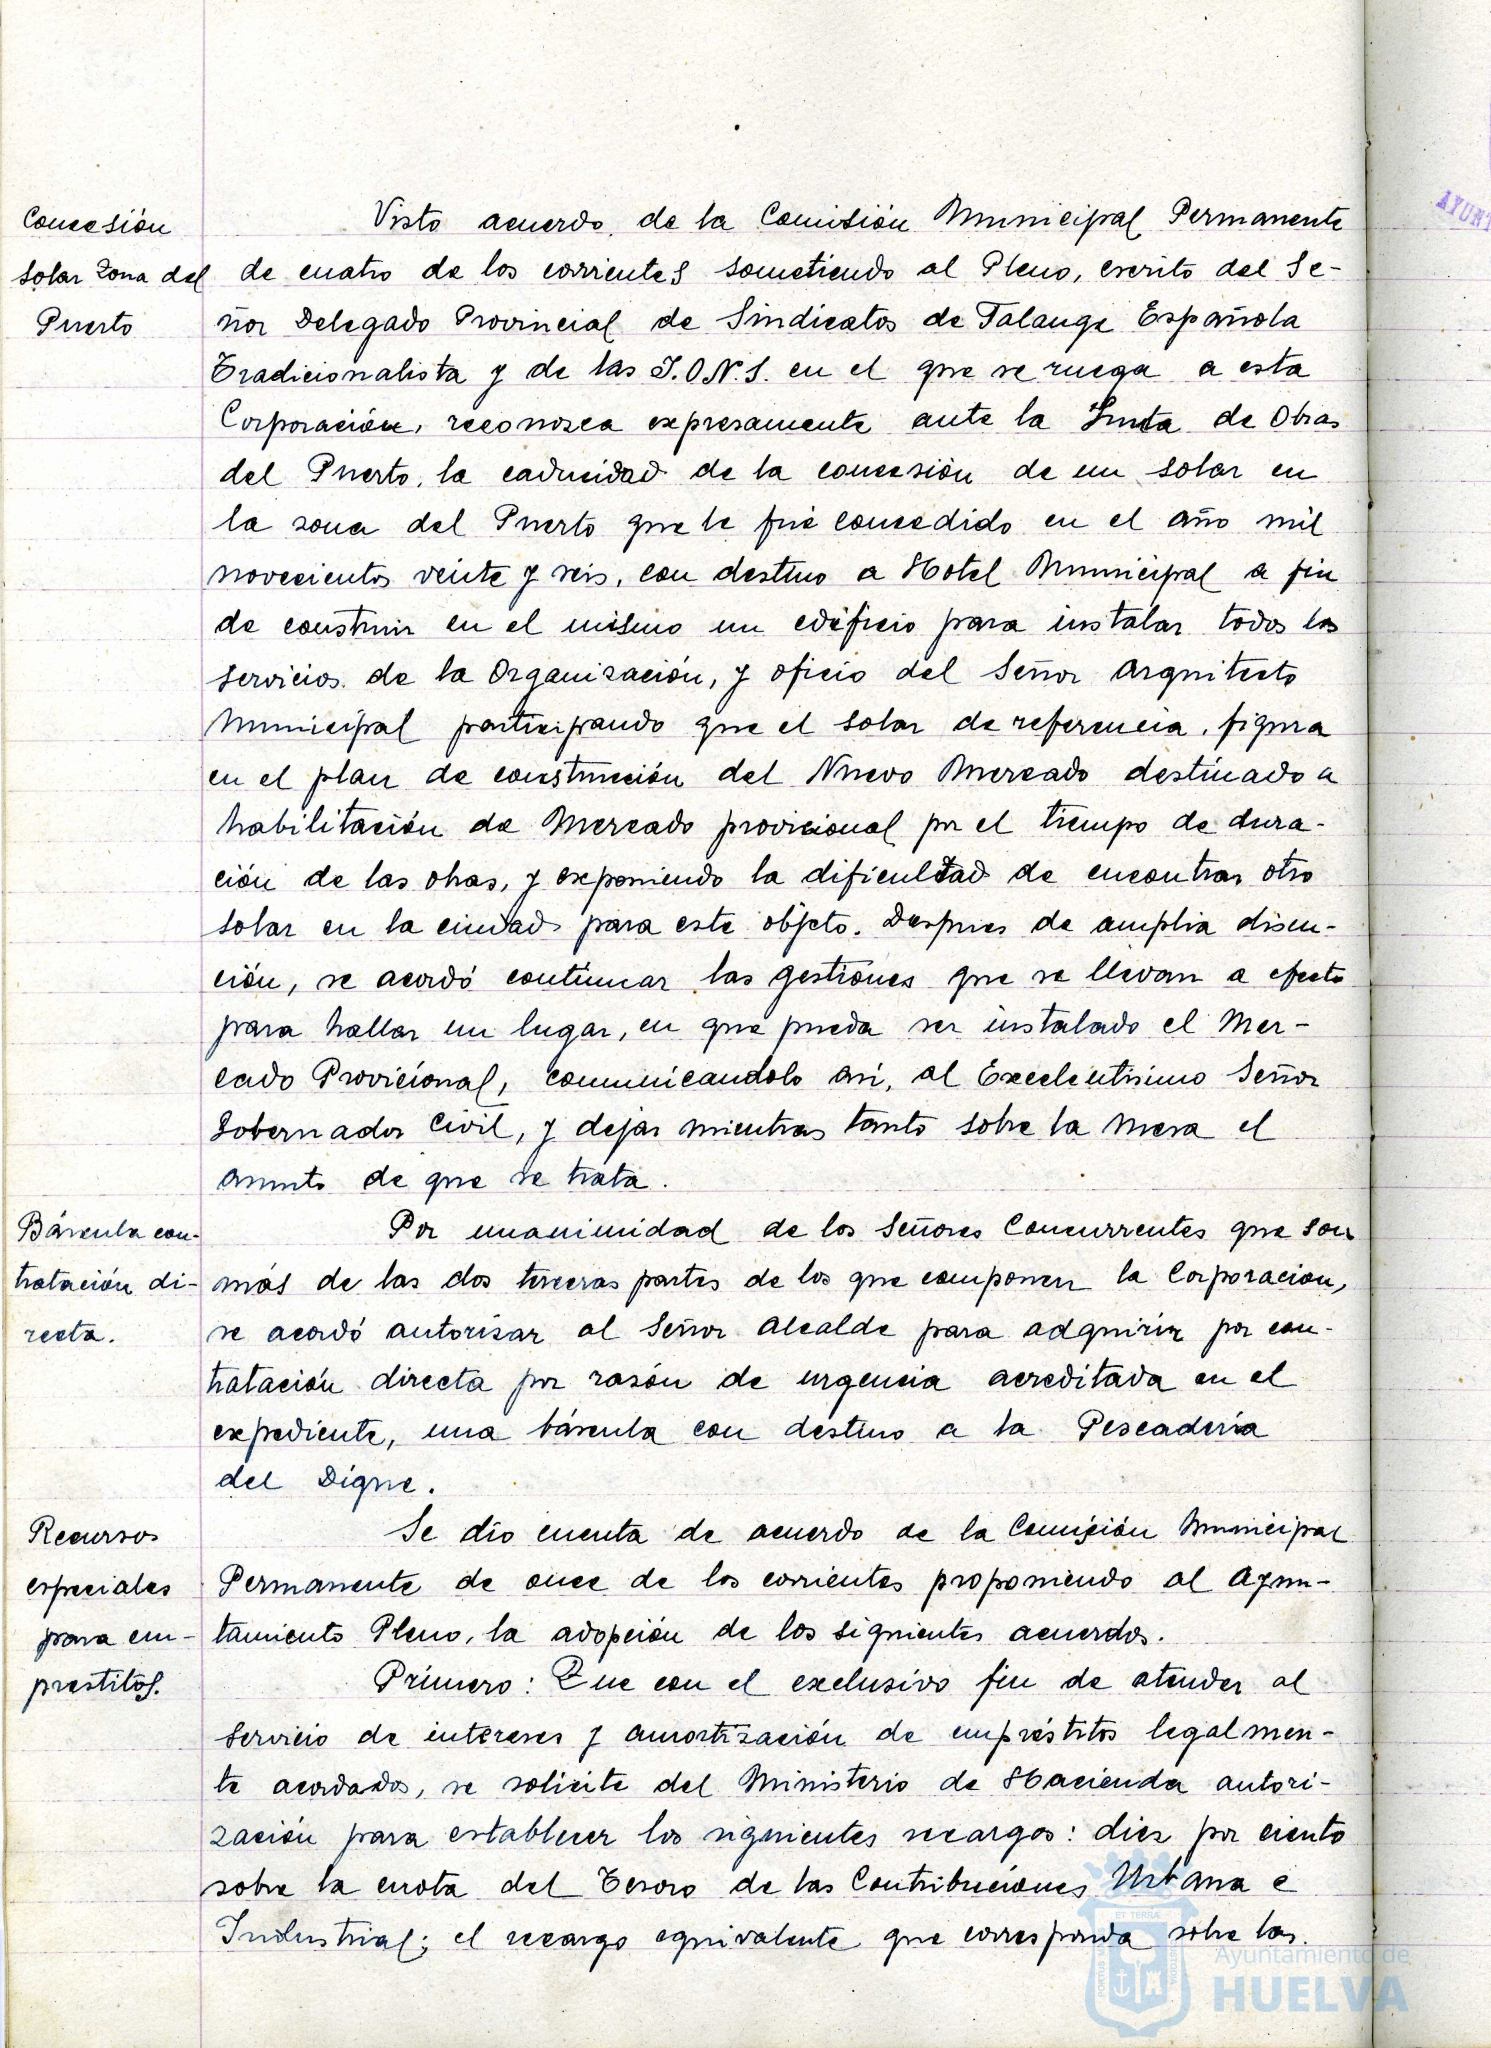 Concesión
solar Zona del
Puerto
Visto acuerdo de la Comisión Municipal Permanente
de cuatro de los corrientes sometiendo al Pleno, escrito del Se-
ñor Delegado Provincial de Sindicatos de Falange Española
Tradicionalista y de las J.O.N.S. en el que se ruega a esta
Corporación, reconozca expresamente ante la Junta de Obras
del Puerto, la caducidad de la concesión de un solar en
la zona del Puerto que le fué concedido en el año mil
novecientos veinte y seis, con destino a Hotel Municipal a fin
de construir en el mismo un edificio para instalar todos los
servicios de la Organización, y oficio del Señor Arquitecto
Municipal participando que el solar de referencia, figura
en el plan de construcción del Nuevo Mercado destinado a
habilitación de Mercado provicional por el tiempo de dura-
ción de las obras, y exponiendo la dificultad de encontrar otro
solar en la ciudad para este objeto. Despues de amplia discu-
ción, se acordó continuar las gestiones que se llevan a efecto
para hallar un lugar, en que pueda ser instalado el Mer-
cado Provicional, comunicandolo así, al Excelentisimo Señor
Gobernador Civil, y dejar mientras tanto sobre la Mesa el
asunto de que se trata.
Báscula con-
tratación di-
recta.
Por unanimidad de los Señores Concurrentes que son
más de las dos terceras partes de los que componen la Corporación,
se acordó autorizar al Señor Alcalde para adquirir por con-
tratación directa por razón de urgencia acreditada en el
expediente, una báscula con destino a la Pescadería
del Dique.
Recursos
especiales
para em-
prestitos.
Se dio cuenta de acuerdo de la Comisión Municipal
Permanente de once de los corrientes proponiendo al Ayun-
tamiento Pleno, la adopción de los siguientes acuerdos.
Primero: Que con el exclusivo fin de atender al
servicio de intereses y amortización de empréstitos legalmen-
te acordados, se solicite del Ministerio de Hacienda autori-
zación para establecer los siguientes recargos: diez por ciento
sobre la cuota del Tesoro de las Contribuciones Urbana e
Industrial; el recargo equivalente que corresponda sobre las
Ayuntamiento de
HUELVA